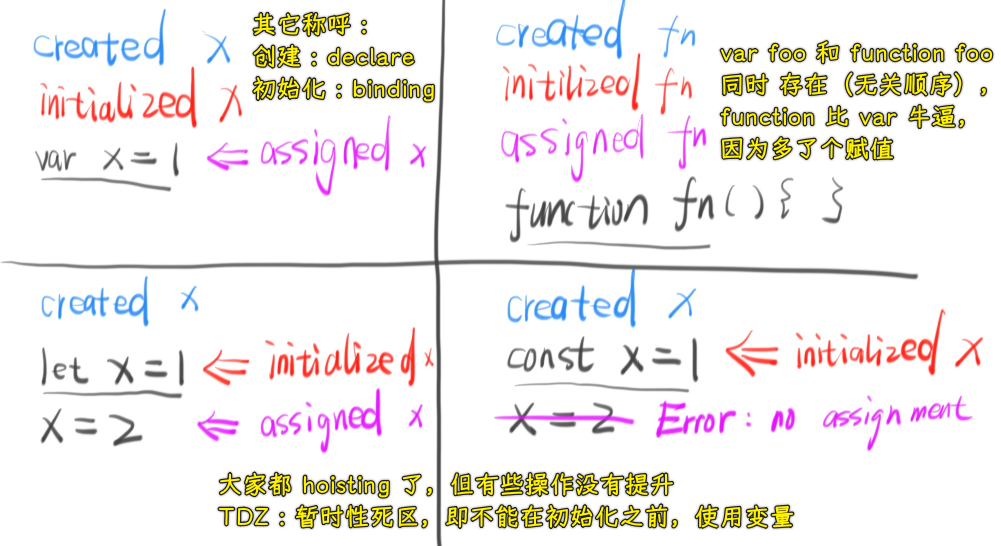 created x
其它称呼：
创建：declare
initialized x
初始化：binding
var x=1 ⇐ assigned x
created fn
initilized fn
assigned fn
function fn(){ }
var foo 和 function foo
同时 存在（无关顺序），
function 比 var 牛逼，
因为多了个赋值
created x
let x=1 ⇐ initialized x
x=2 ⇐ assigned x
created x
const x=1 ⇐ initialized x
x=2 Error: no assignment
大家都 hoisting 了，但有些操作没有提升
TDZ：暂时性死区，即不能在初始化之前，使用变量